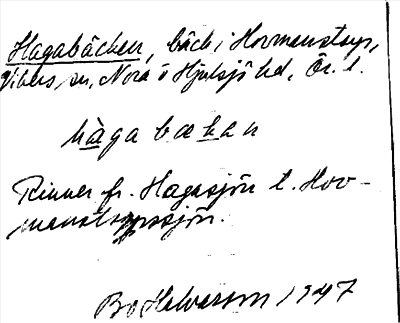 Hagabäcken, bäck i Hovmanstorp,
Vikers sn, Nora o Hjulsjö hd, Ör. l.
hàgabækan
Rinner fr. Hagasjön t. Hov-
manstorpssjön.
Bo Halvarson 1947